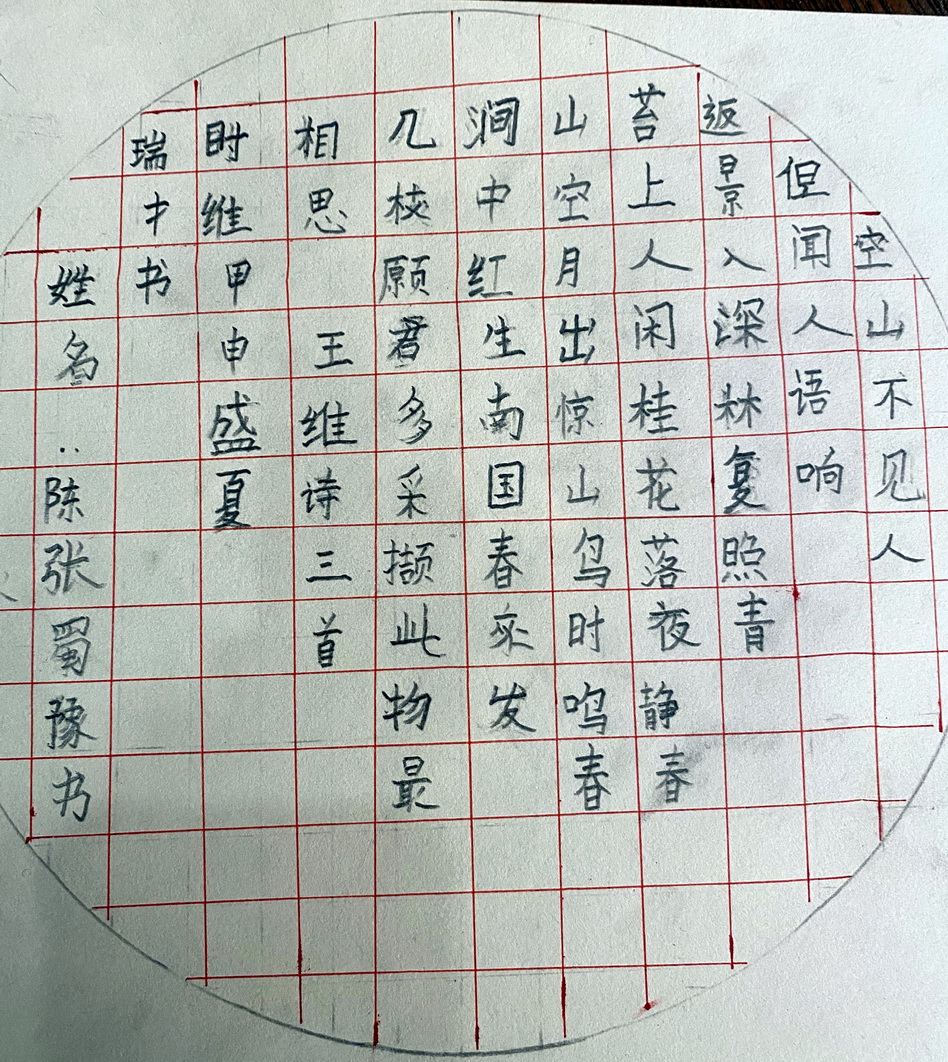 空山不见人
但闻人语响
返景入深林复照青
苔上人闲桂花落夜静春
山空月出惊山鸟时鸣春
涧中红生南国春来发
几枝愿君多采撷此物最
相思 王维诗三首
时维甲申盛夏
瑞才书
姓名：陈张蜀豫书